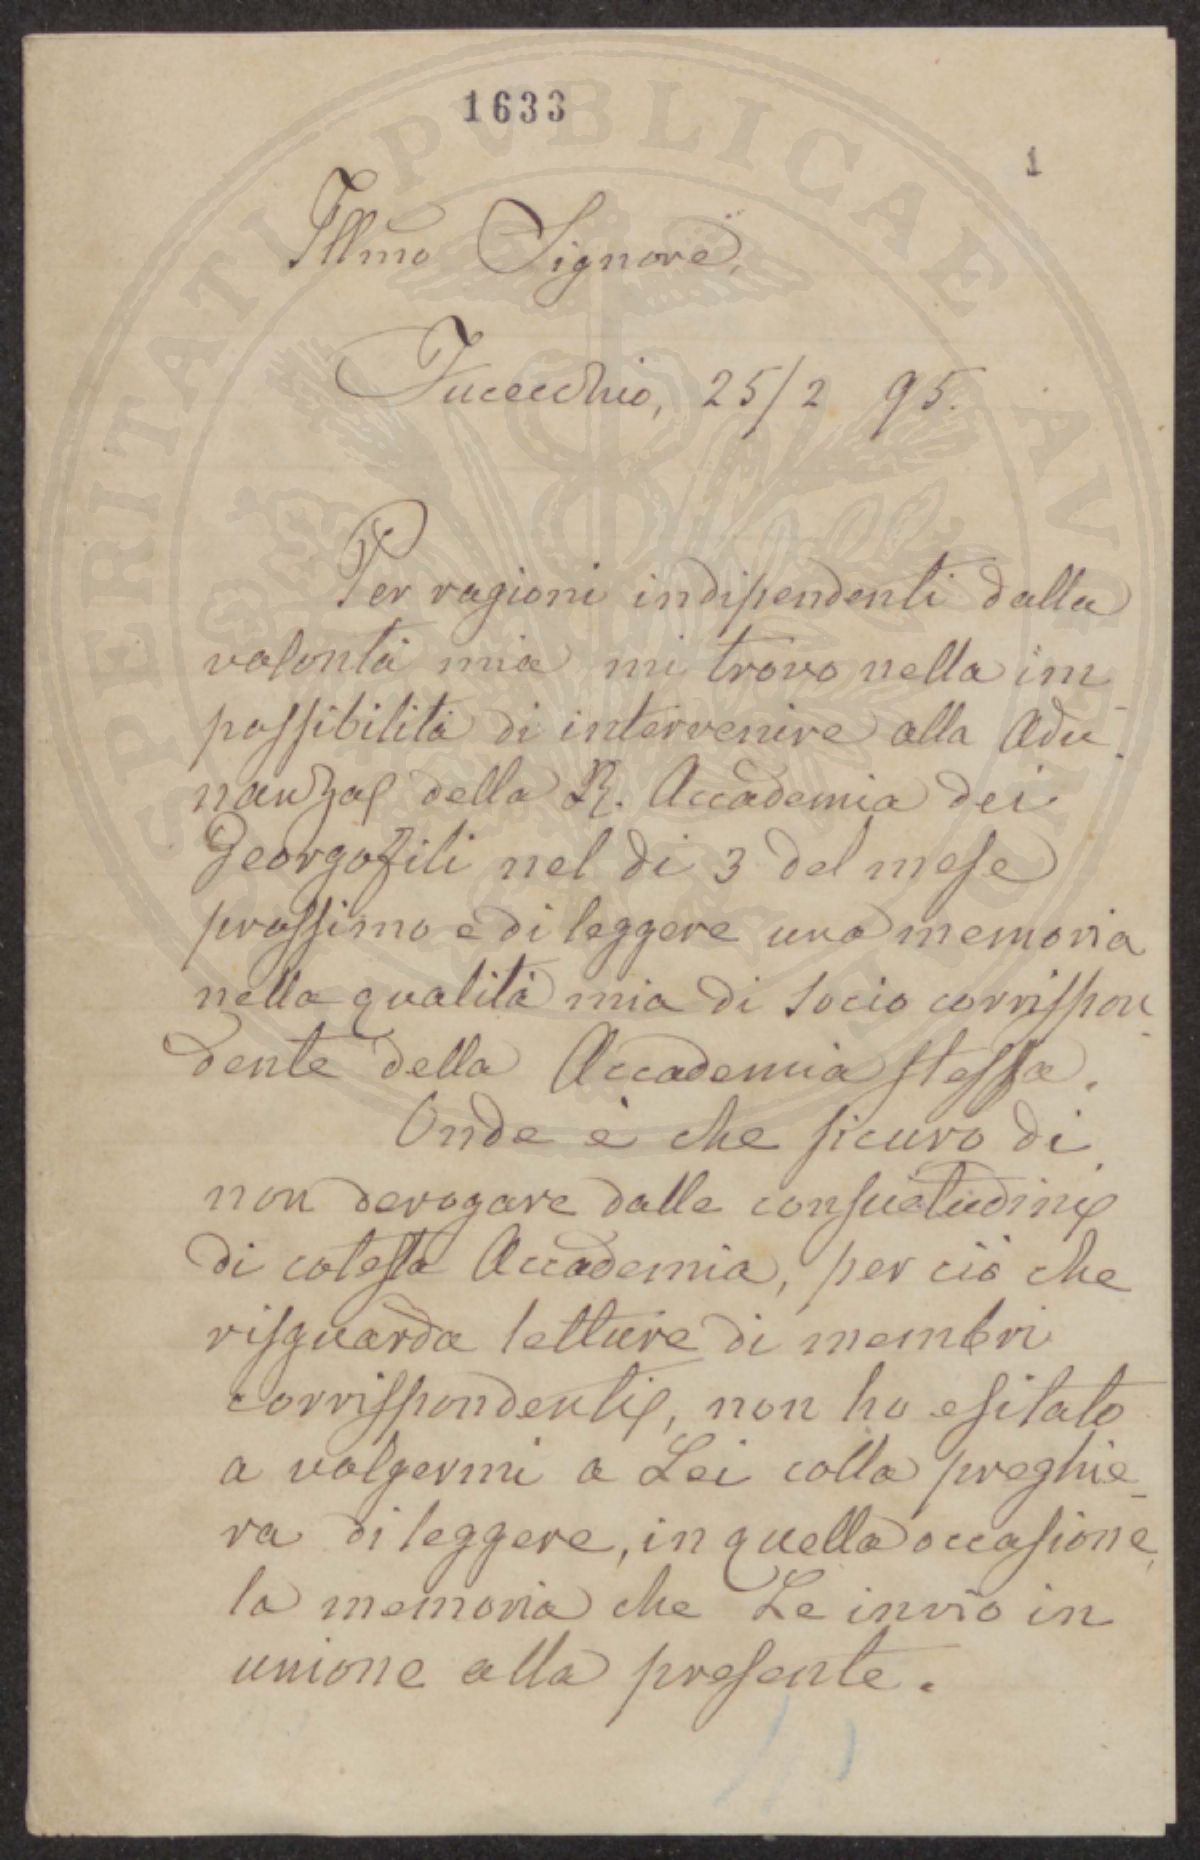 1633
1
Illmo Signore,
Fucecchio, 25/2 95.
Per ragioni indipendenti dalla
volontà mia mi trovo nella im
possibilità di intervenire alla Adu
nanza della R. Accademia dei
Georgofili nel dì 3 del mese
prossimo e di leggere una memoria
nella qualità mia di socio corrispon
dente della Accademia stessa.
Onde è che sicuro di
non derogare dalle consuetudini
di cotesta Accademia, per ciò che
risguarda letture di membri
corrispondenti, non ho esitato
a volgermi a Lei colla preghie-
ra di leggere, in quella occasione,
la memoria che Le invio in
unione alla presente.
PROSPERITATI PUBLICAE AUGENDAE